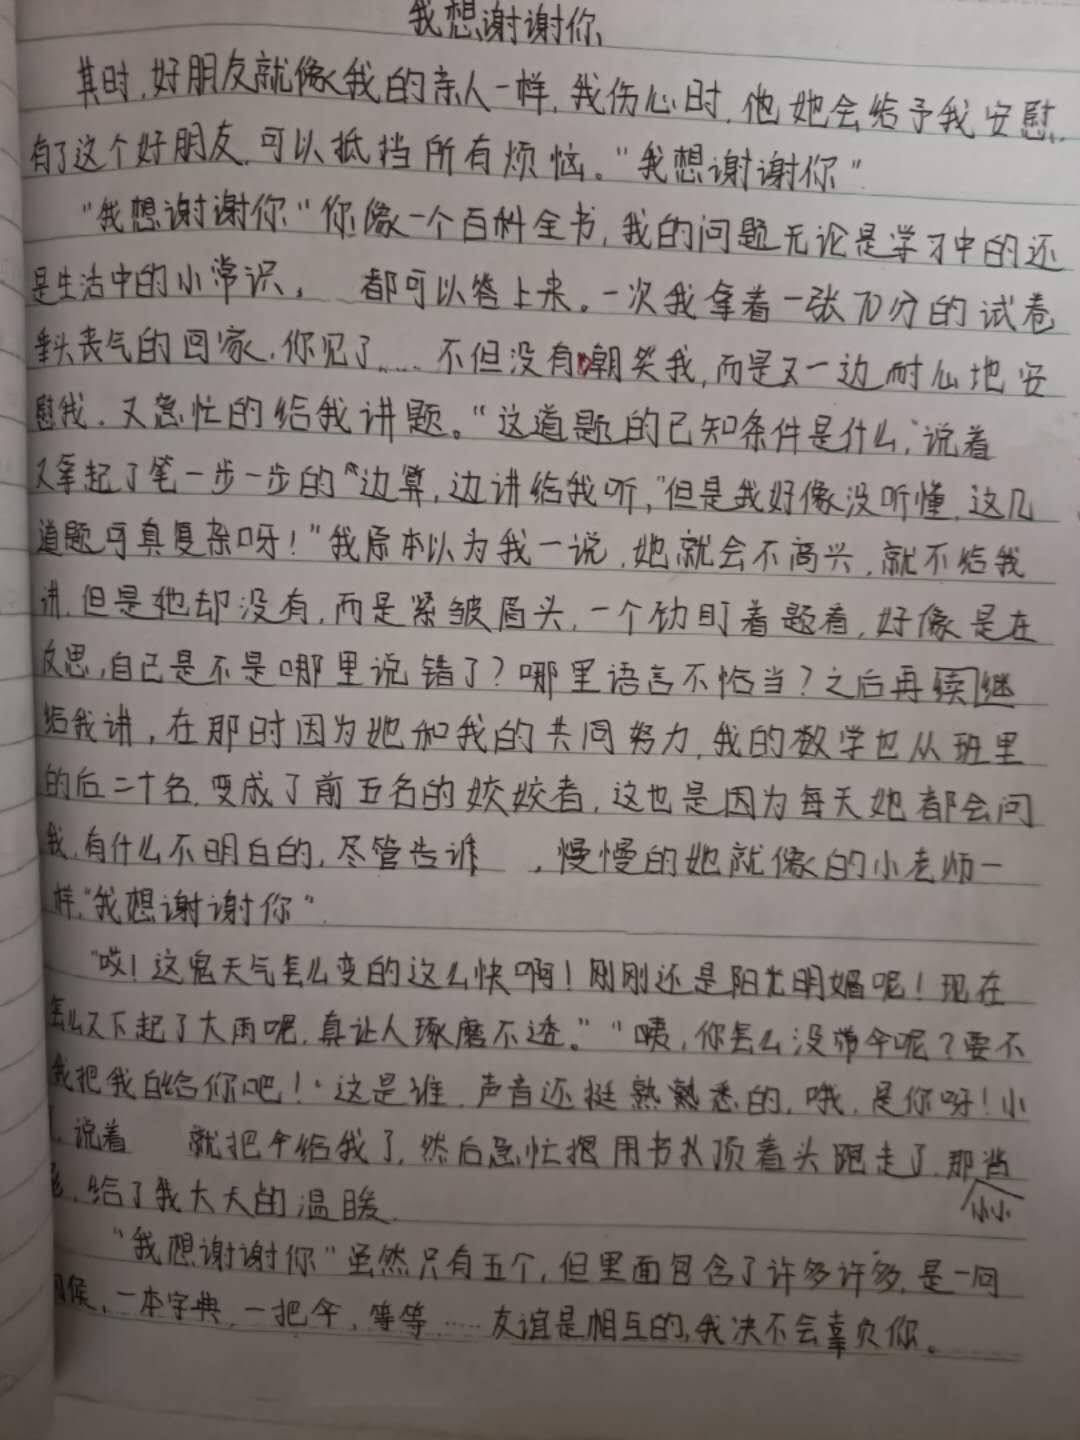 我想谢谢你
其时,好朋友就像我的亲人一样,我伤心时,他她会给予我安慰,
有了这个好朋友,可以抵挡所有烦恼。“我想谢谢你”
“我想谢谢你“你像一个百科全书,我的问题无论是学习中的还
是生活中的小常识, 都可以答上来。一次我拿着一张70分的试卷
垂头丧气的回家,你见了…… 不但没有嘲笑我,而是又一边耐心地安
慰我,又急忙的给我讲题。“这道题的已知条件是什么,”说着
又拿起了笔一步一步的“边算,边讲给我听,”但是我好像没听懂,这几
道题可真复杂呀!”我原本以为我一说,她就会不高兴,就不给我
讲,但是她却没有,而是紧皱眉头,一个劲盯着题看,好像是在
反思,自己是不是哪里说错了?哪里语言不恰当?之后再续继
给我讲,在那时因为她和我的共同努力,我的数学也从班里
的后二十名,变成了前五名的姣姣者,这也是因为每天她都会问
我,有什么不明白的,尽管告诉 ,慢慢的她就像的小老师一
样,“我想谢谢你”.
“哎!这鬼天气怎么变的这么快啊!刚刚还是阳光明媚呢!现在
怎么又下起了大雨呢,真让人琢磨不透。”“咦,你怎么没带伞呢?要不
我把我的给你吧!“这是谁,声音还挺熟熟悉的,哦,是你呀!小
说着 就把伞给我了,然后急忙把用书扒顶着头跑走了,那当
小小
,给了我大大的温暖.
“我想谢谢你”虽然只有五个,但里面包含了许多许多,是一问
候,一本字典,一把伞,等等……友谊是相互的,我决不会辜负你。